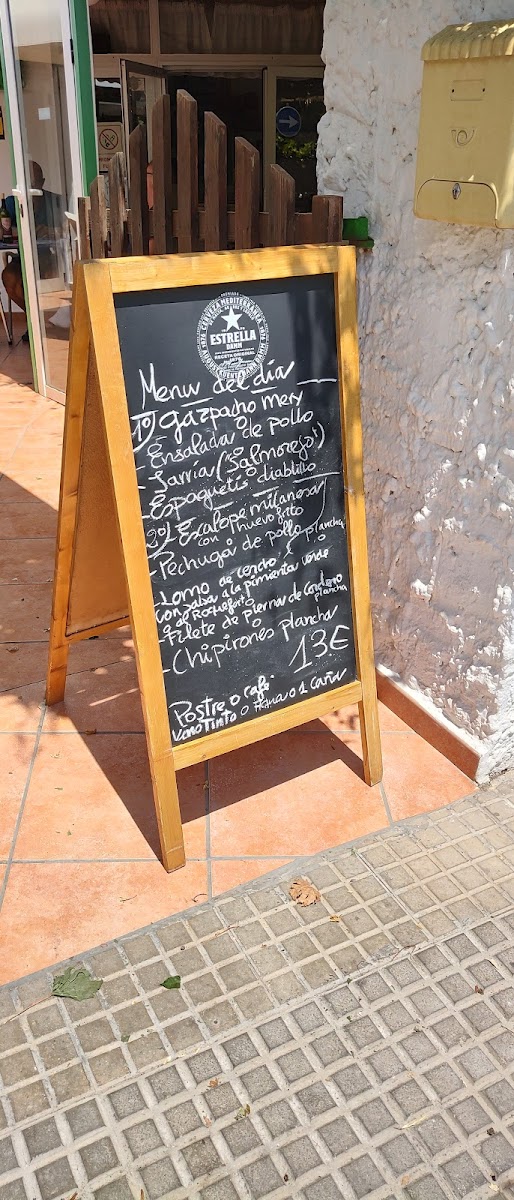 ESTRELLA
DAMM
Menu del día
1º) gazpacho Mery
- Ensalada de pollo
- Jarria (Salmorejo!)
- Espaguetis diablillo
2º) Escalope milanesa
con huevo frito
- Pechuga de pollo plancha
- Lomo de cerdo
con salsa a la pimienta verde
o de Roquefort
- Filete de Pierna de Cordero
plancha
- Chipirones plancha
13€
Postre o café
Vaso Tinto o o 1 Caña